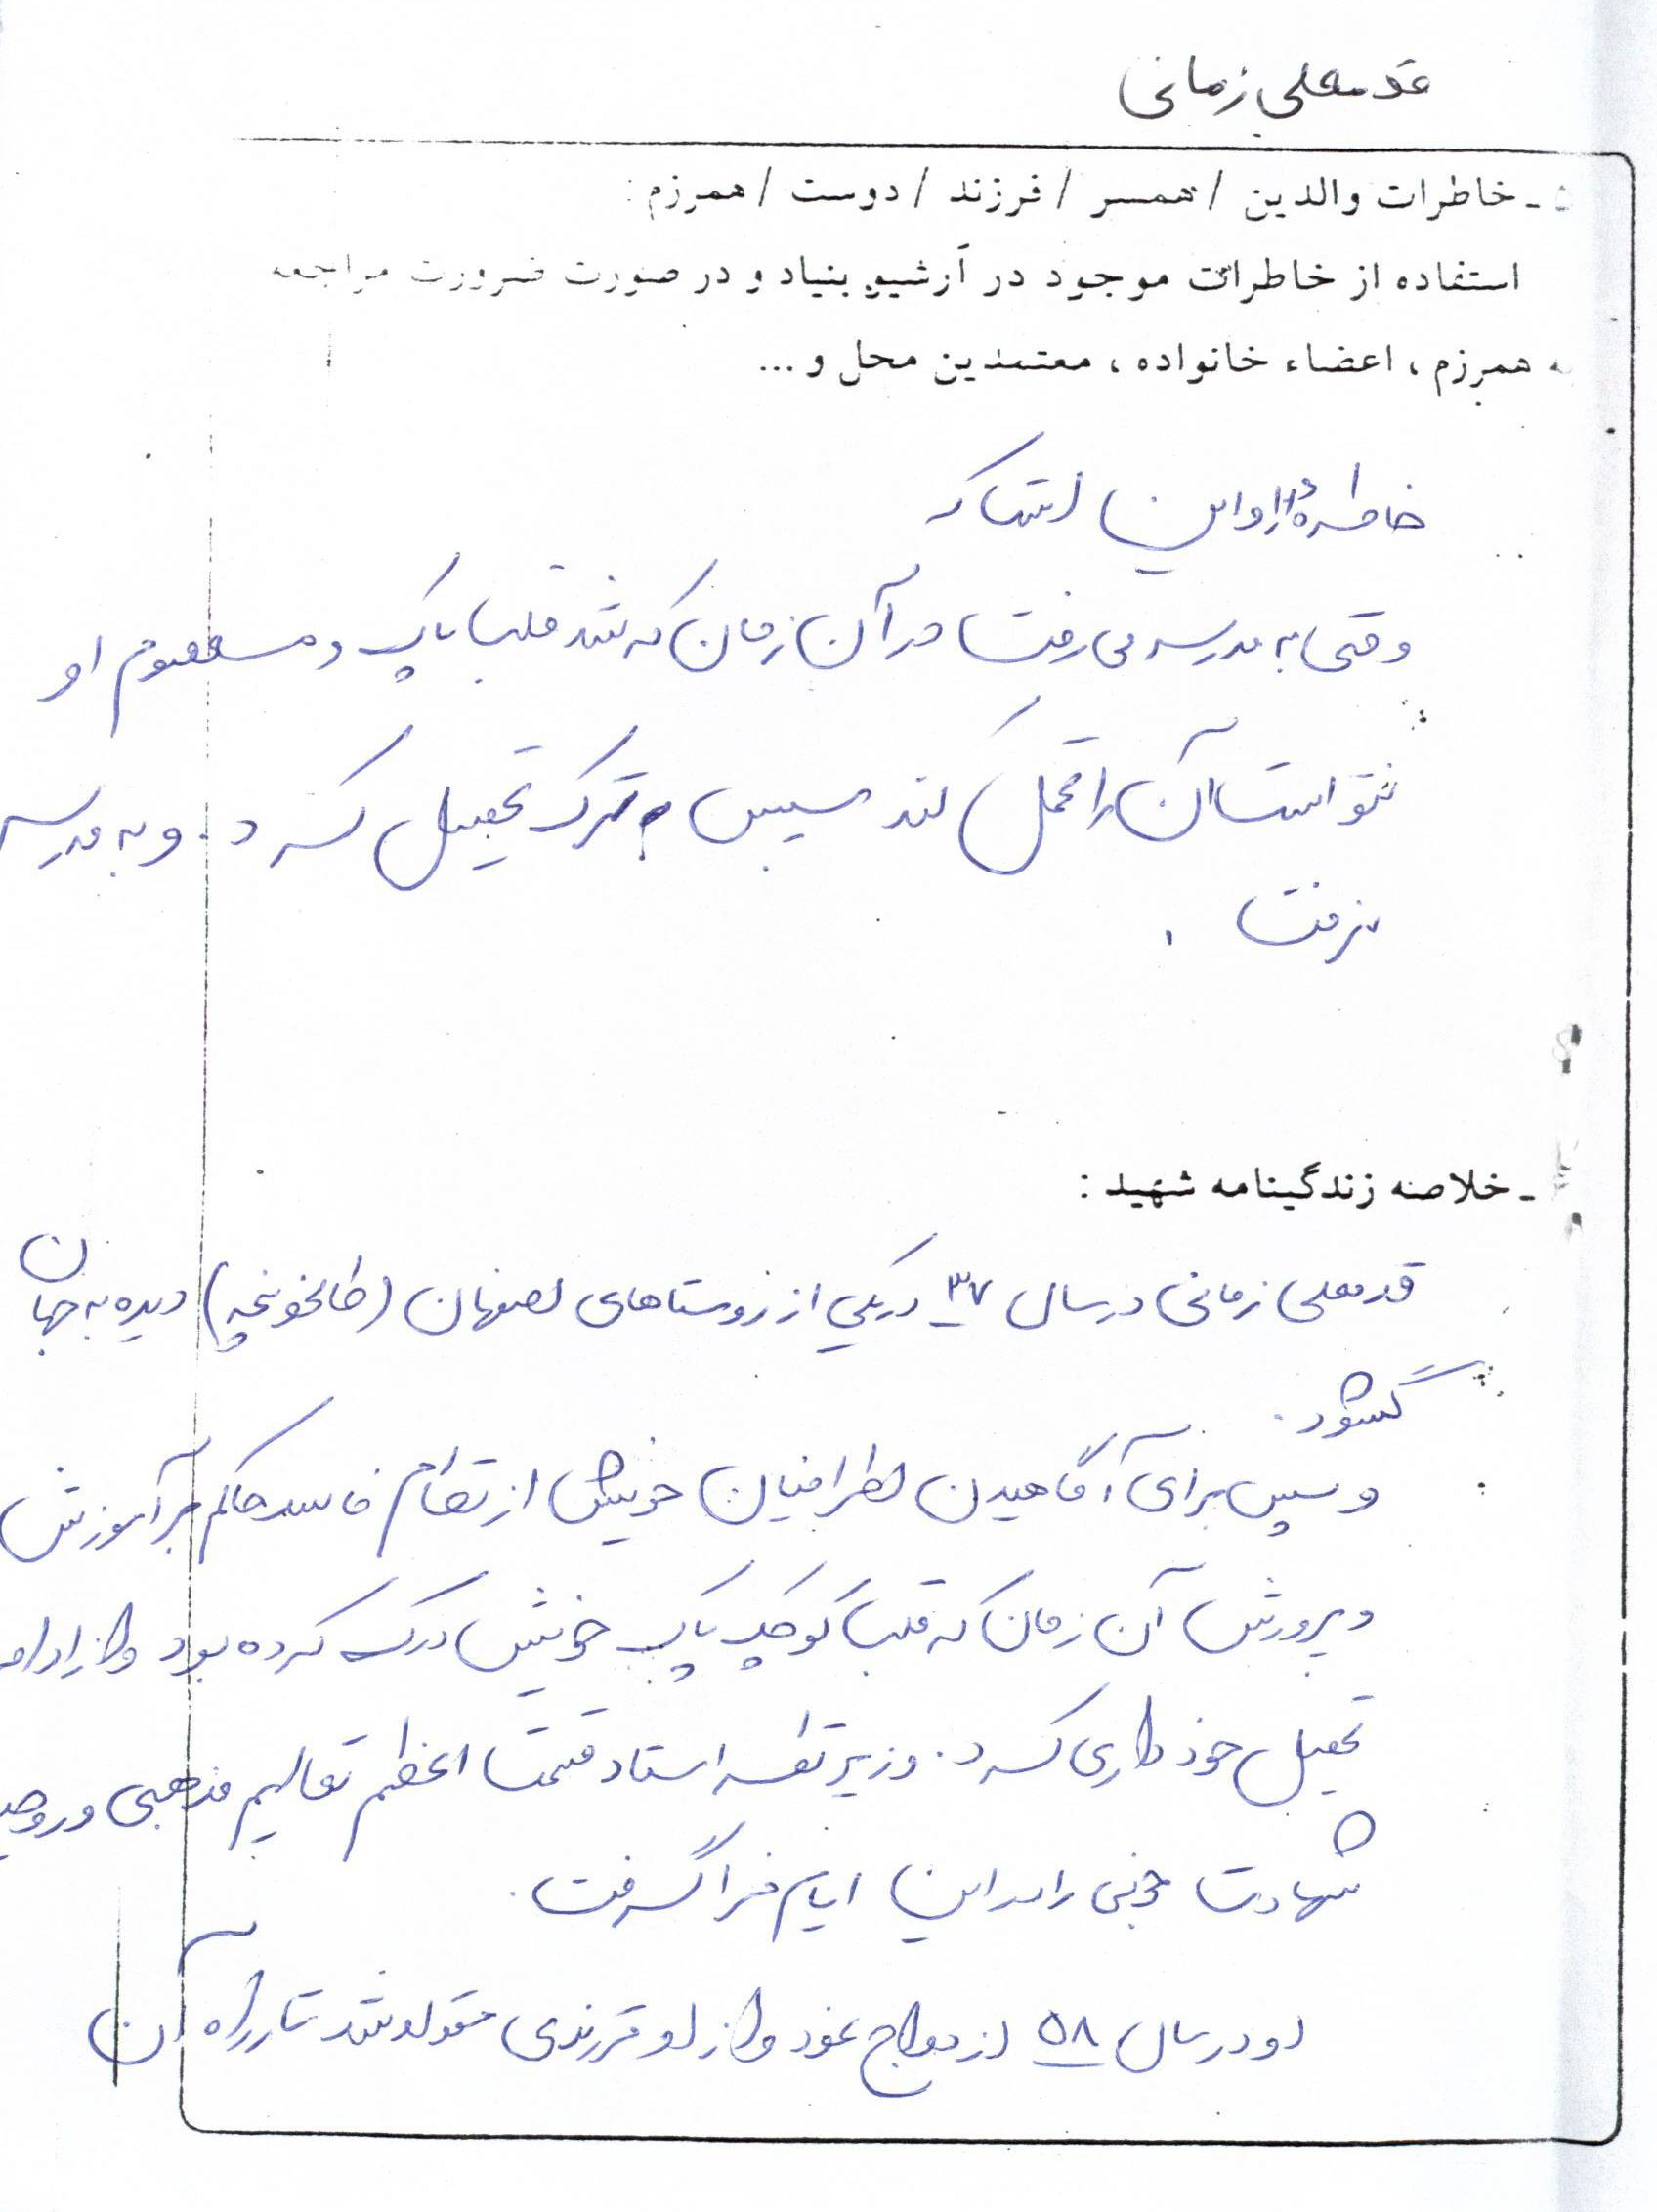 قدمعلی زمانی
۵ - خاطرات والدین / همسر / فرزند / دوست / همرزم :
استفاده از خاطرات موجود در آرشیو بنیاد و در صورت ضرورت مراجعه
به همرزم ، اعضاء خانواده ، معتمدین محل و ...
خاطره از او این است که
وقتی به مدرسه می رفت در آن زمان که شد قلب پاک و معصوم او
نتوانست آن را تحمل کند سپس ترک تحصیل کرد . و به مدرسه
نرفت .
- خلاصه زندگینامه شهید :
قدمعلی زمانی در سال ۳۷ در یکی از روستاهای اصفهان (طالخونچه) دیده به جهان
گشود .
و سپس برای آگاهیدن اطرافیان خویش از نظام فاسد حاکم بر آموزش
و پرورش آن زمان که قلب کوچک پاک خویش درک کرده بود و از ادامه
تحصیل خودداری کرد . و زیر نظر استاد قسمت اعظم تعالیم مذهبی و روحیه
شهادت را در این ایام فرا گرفت .
او در سال ۵۸ ازدواج نمود و از او فرزندی متولد شد تا راه آن